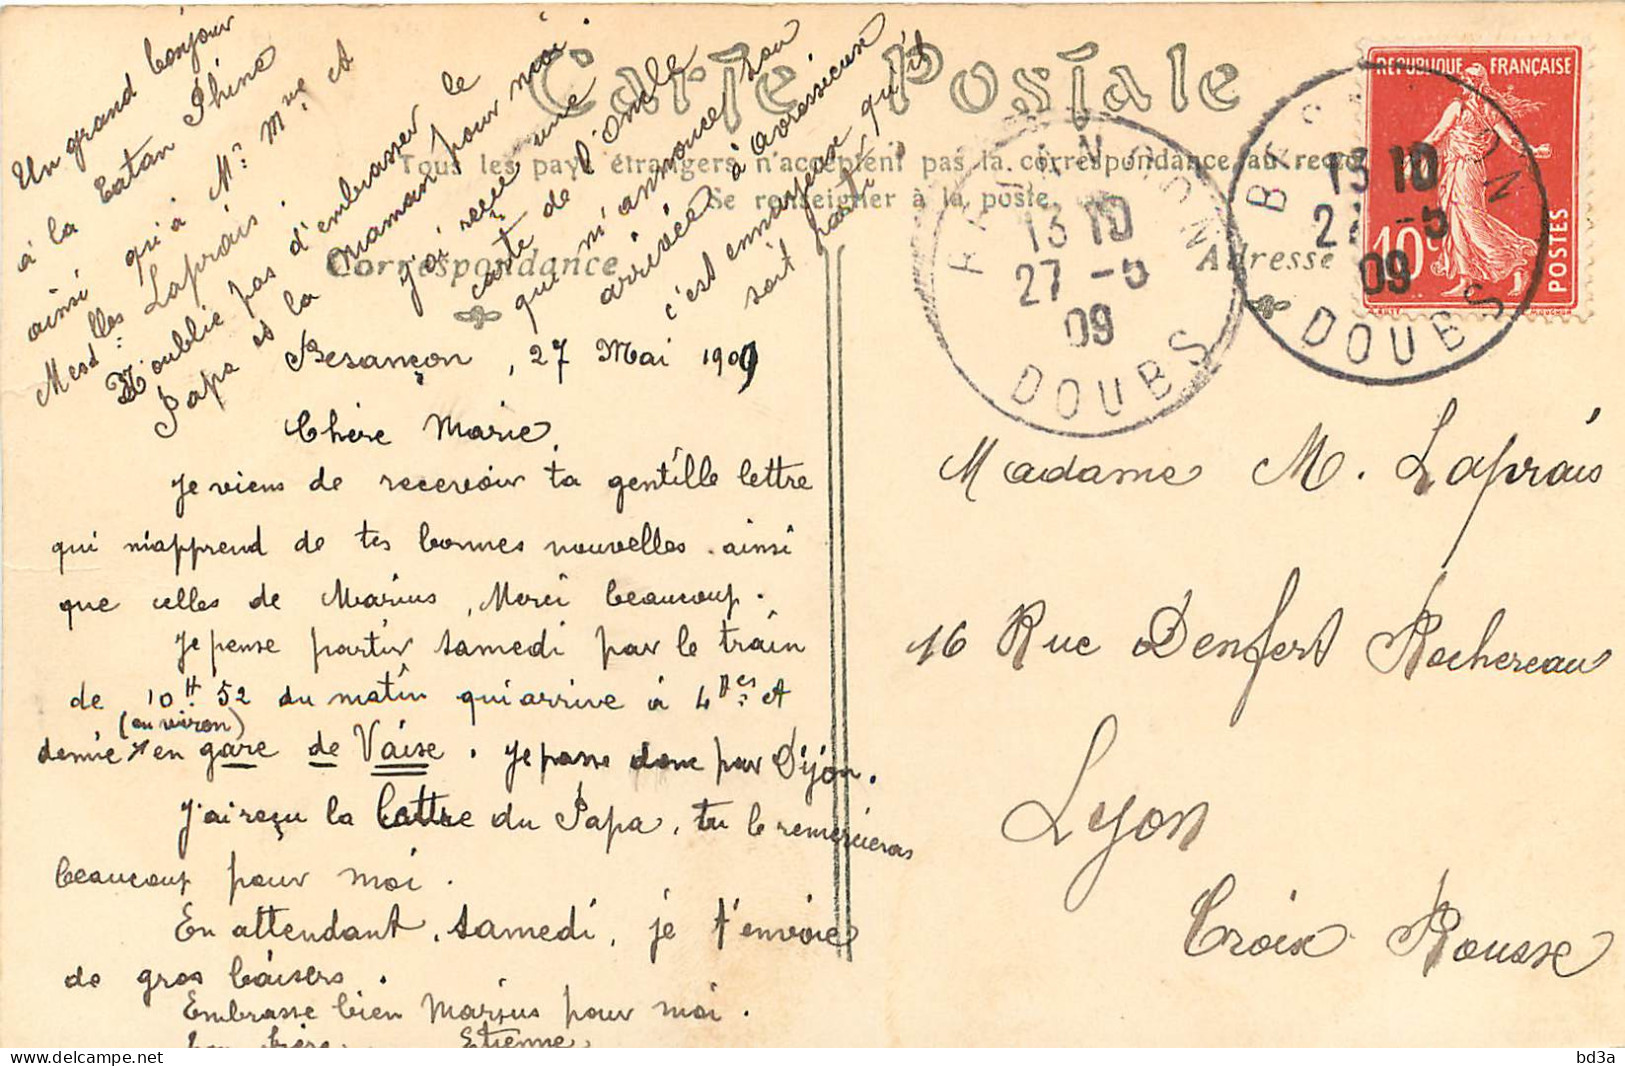 Carte Postale
Tous les pays étrangers n'acceptent pas la correspondance au recto
Se renseigner à la poste
Correspondance
Adresse
RÉPUBLIQUE FRANÇAISE
10c
POSTES
BESANÇON
13 10
27 -5
09
DOUBS
BESANÇON
13 10
27 -5
09
DOUBS
Un grand bonjour
à la Tatan Phine
ainsi qu'à Mr Mme et
Mesdlles Laprais.
N'oublie pas d'embrasser le
Papa et la Maman pour moi.
J'ai reçu une
carte de l'Oncle
qui m'annonce son
arrivée à
c'est ennuyeux qu'il
soit parti
Besançon, 27 Mai 1909
Chère Marie,
Je viens de recevoir ta gentille lettre
qui m'apprend de tes bonnes nouvelles ainsi
que celles de Marius, Merci beaucoup.
Je pense partir samedi par le train
de 10H 52 du matin qui arrive à 4 hres et
(environ)
demie en gare de Vaise. Je passe donc par Dijon.
J'ai reçu la lettre du Papa, tu le remercieras
beaucoup pour moi.
En attendant, samedi, je t'envoie
de gros baisers.
Embrasse bien Marius pour moi.
Ton frère Etienne
Madame M. Laprais
16 Rue Denfert Rochereau
Lyon
Croix Rousse
bd3a